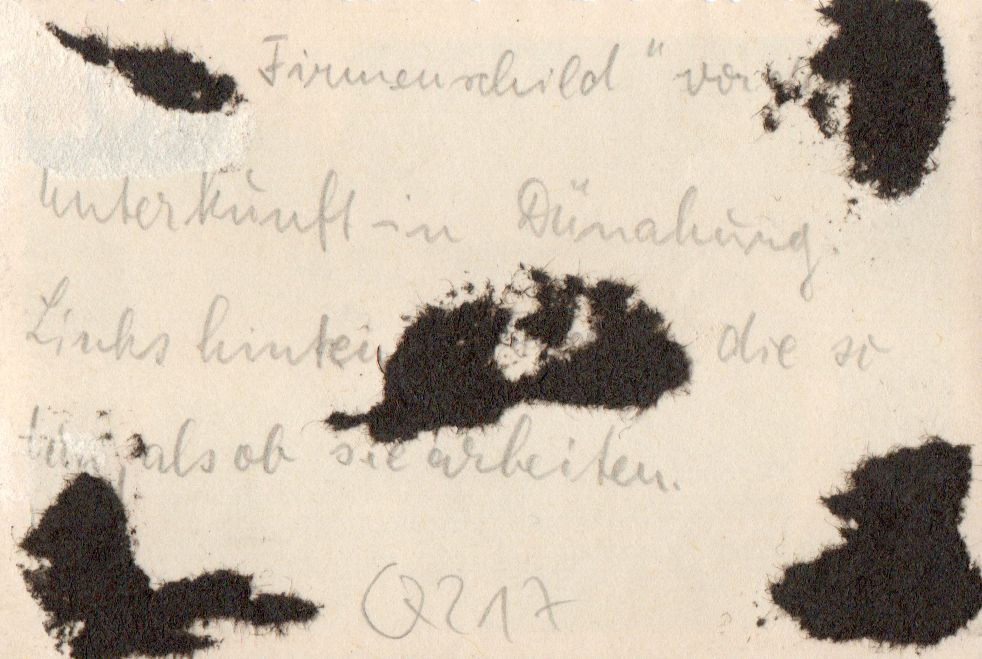 Firmenschild" vor
Unterkunft in Dünaburg.
Links hinten die so
tun, als ob sie arbeiten.
Q217